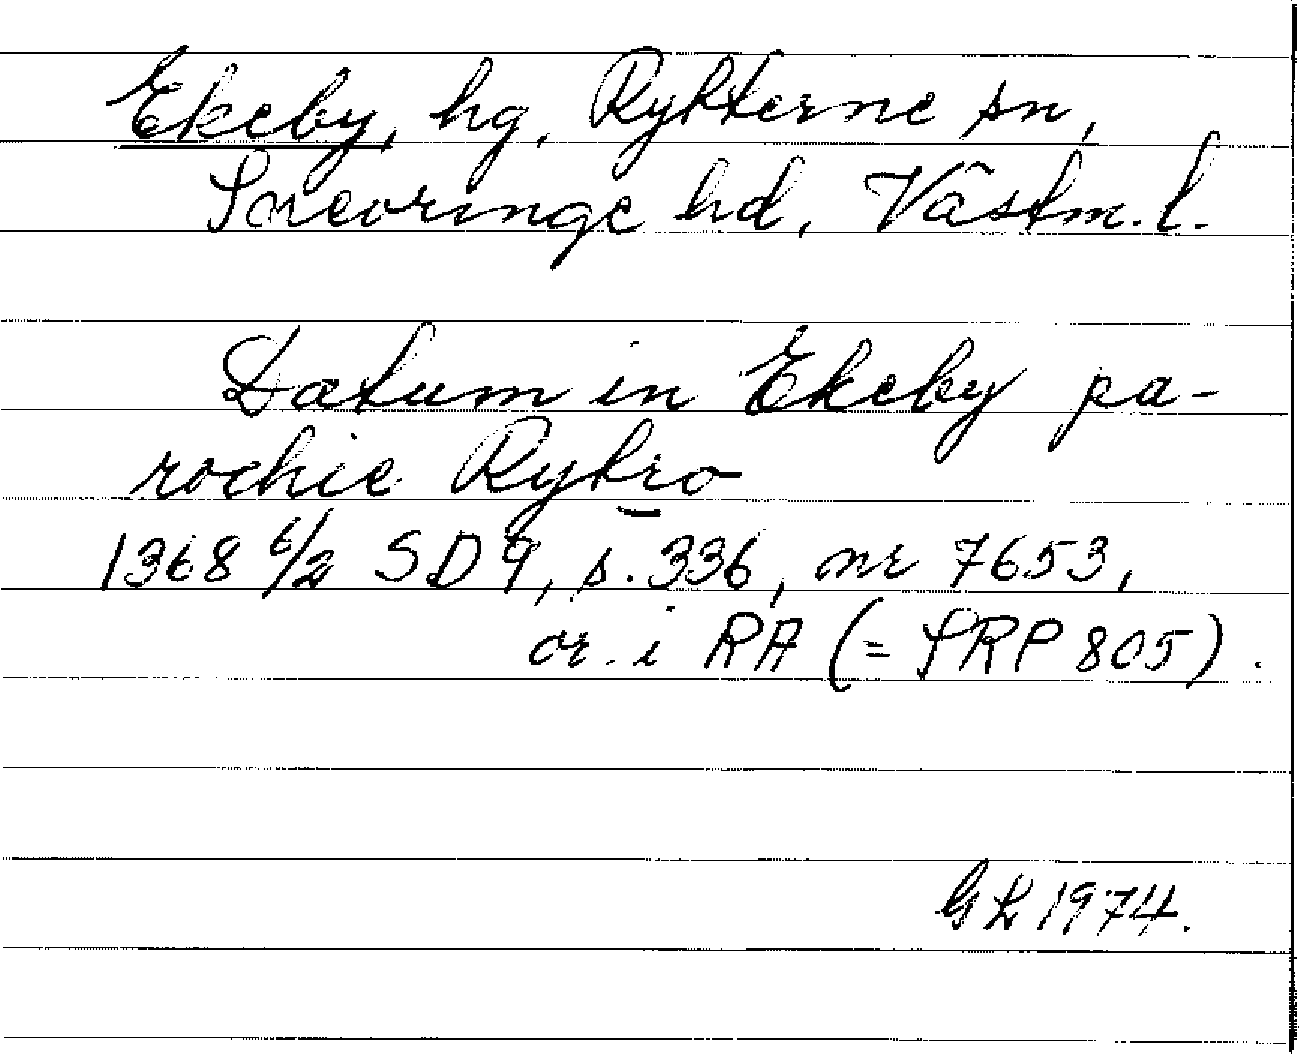 Ekeby, hg, Rytterne sn,
Snevringe hd, Västm. l.
Datum in Ekeby pa-
rochie Rytro
1368 6/2 SD 9, s. 336, nr 7653,
or. i RA (= SRP 805).
GL 1974.